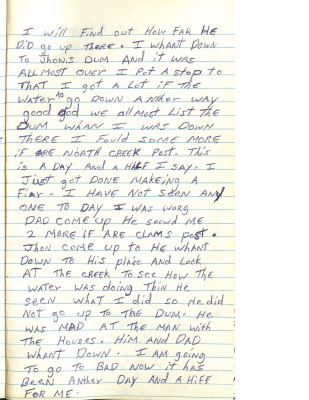 I will Find out How FAR He
DiD go up THERE. I WHANT DOWN
To JHONS DUM AND iT WAS
ALL MOST OVER I Pot A STOP TO
THAT I goT A LoT iF THE
WATER to go DOWN ANther WAY
good god we allmost List the
DUM WHAN I WAS DOWN
THERE I FouiD SOME MORE
iF ARE NORTH CREEK Post. This
is A DAY and A HiFF I SAY. I
JusT goT DONE MAKEing A
FiAr. I HAVE NoT SEEN ANy
ONE TO DAY I WAS worg
DAD COME up He sowd ME
2 MORE iF ARE CLAMS post.
JHON COME up To HE WHANT
DOWN To His place AND Look
AT THE CREEK To see How THE
WATER WAS doing THiN He
seen WHAT I did so He did
NoT go up To THE DUM. He
WAS MAD AT THE MAN with
THE Houses. HiM AND DAD
WHANT DOWN. I AM going
To go To BAD NOW iT HAS
BEEN ANther DAY AND A HiFF
FOR ME.